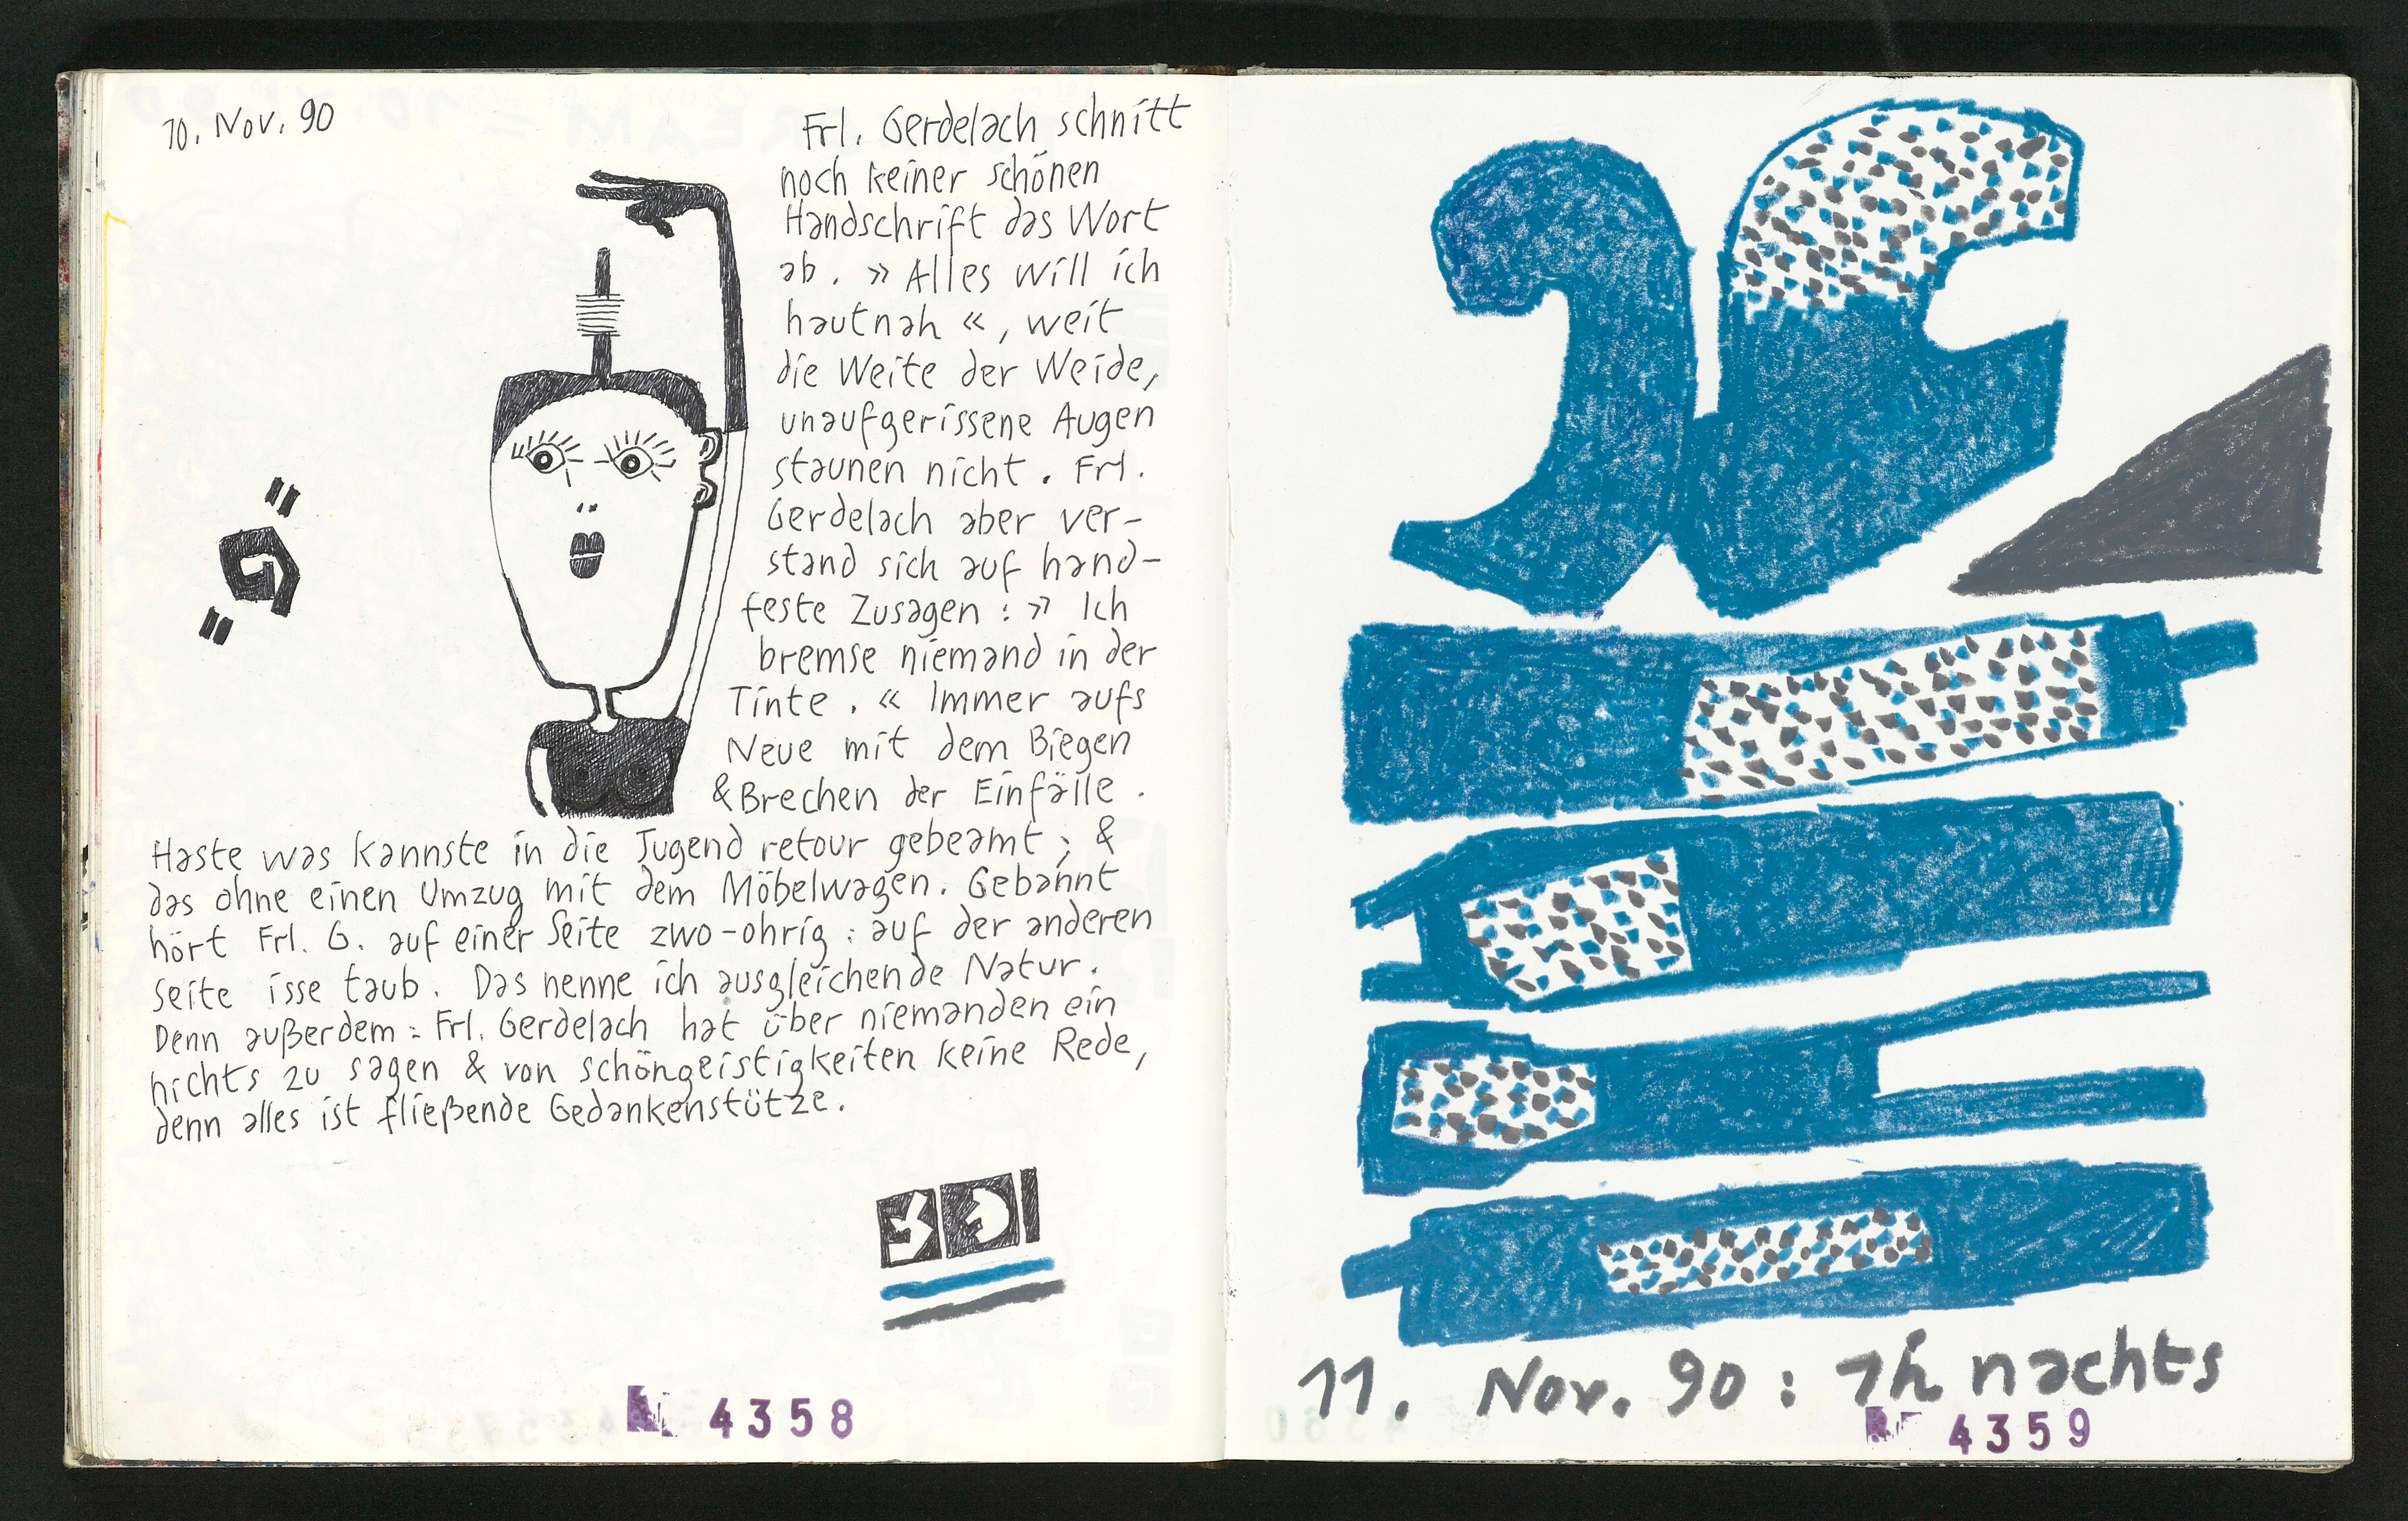 10. Nov. 90
Frl. Gerdelach schnitt
noch keiner schönen
Handschrift das Wort
ab. » Alles will ich
hautnah «, weit
die Weite der Weide,
unaufgerissene Augen
staunen nicht. Frl.
Gerdelach aber ver-
stand sich auf hand-
feste Zusagen : » Ich
bremse niemand in der
Tinte. « Immer aufs
Neue mit dem Biegen
& Brechen der Einfälle.
Haste was kannste in die Jugend retour gebeamt ; &
das ohne einen Umzug mit dem Möbelwagen. Gebannt
hört Frl. G. auf einer Seite zwo-ohrig : auf der anderen
Seite isse taub. Das nenne ich ausgleichende Natur.
Denn außerdem : Frl. Gerdelach hat über niemanden ein
nichts zu sagen & von schöngeistigkeiten keine Rede,
denn alles ist fließende Gedankenstütze.
4358
11. Nov. 90 : 1h nachts
4359